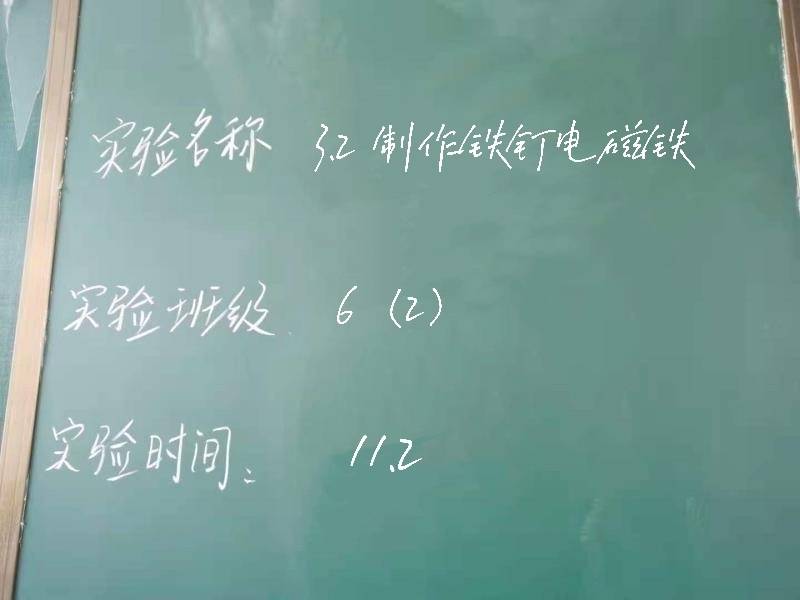 实验名称 3.2 制作铁钉电磁铁
实验班级. 6 (2)
实验时间: 11.2